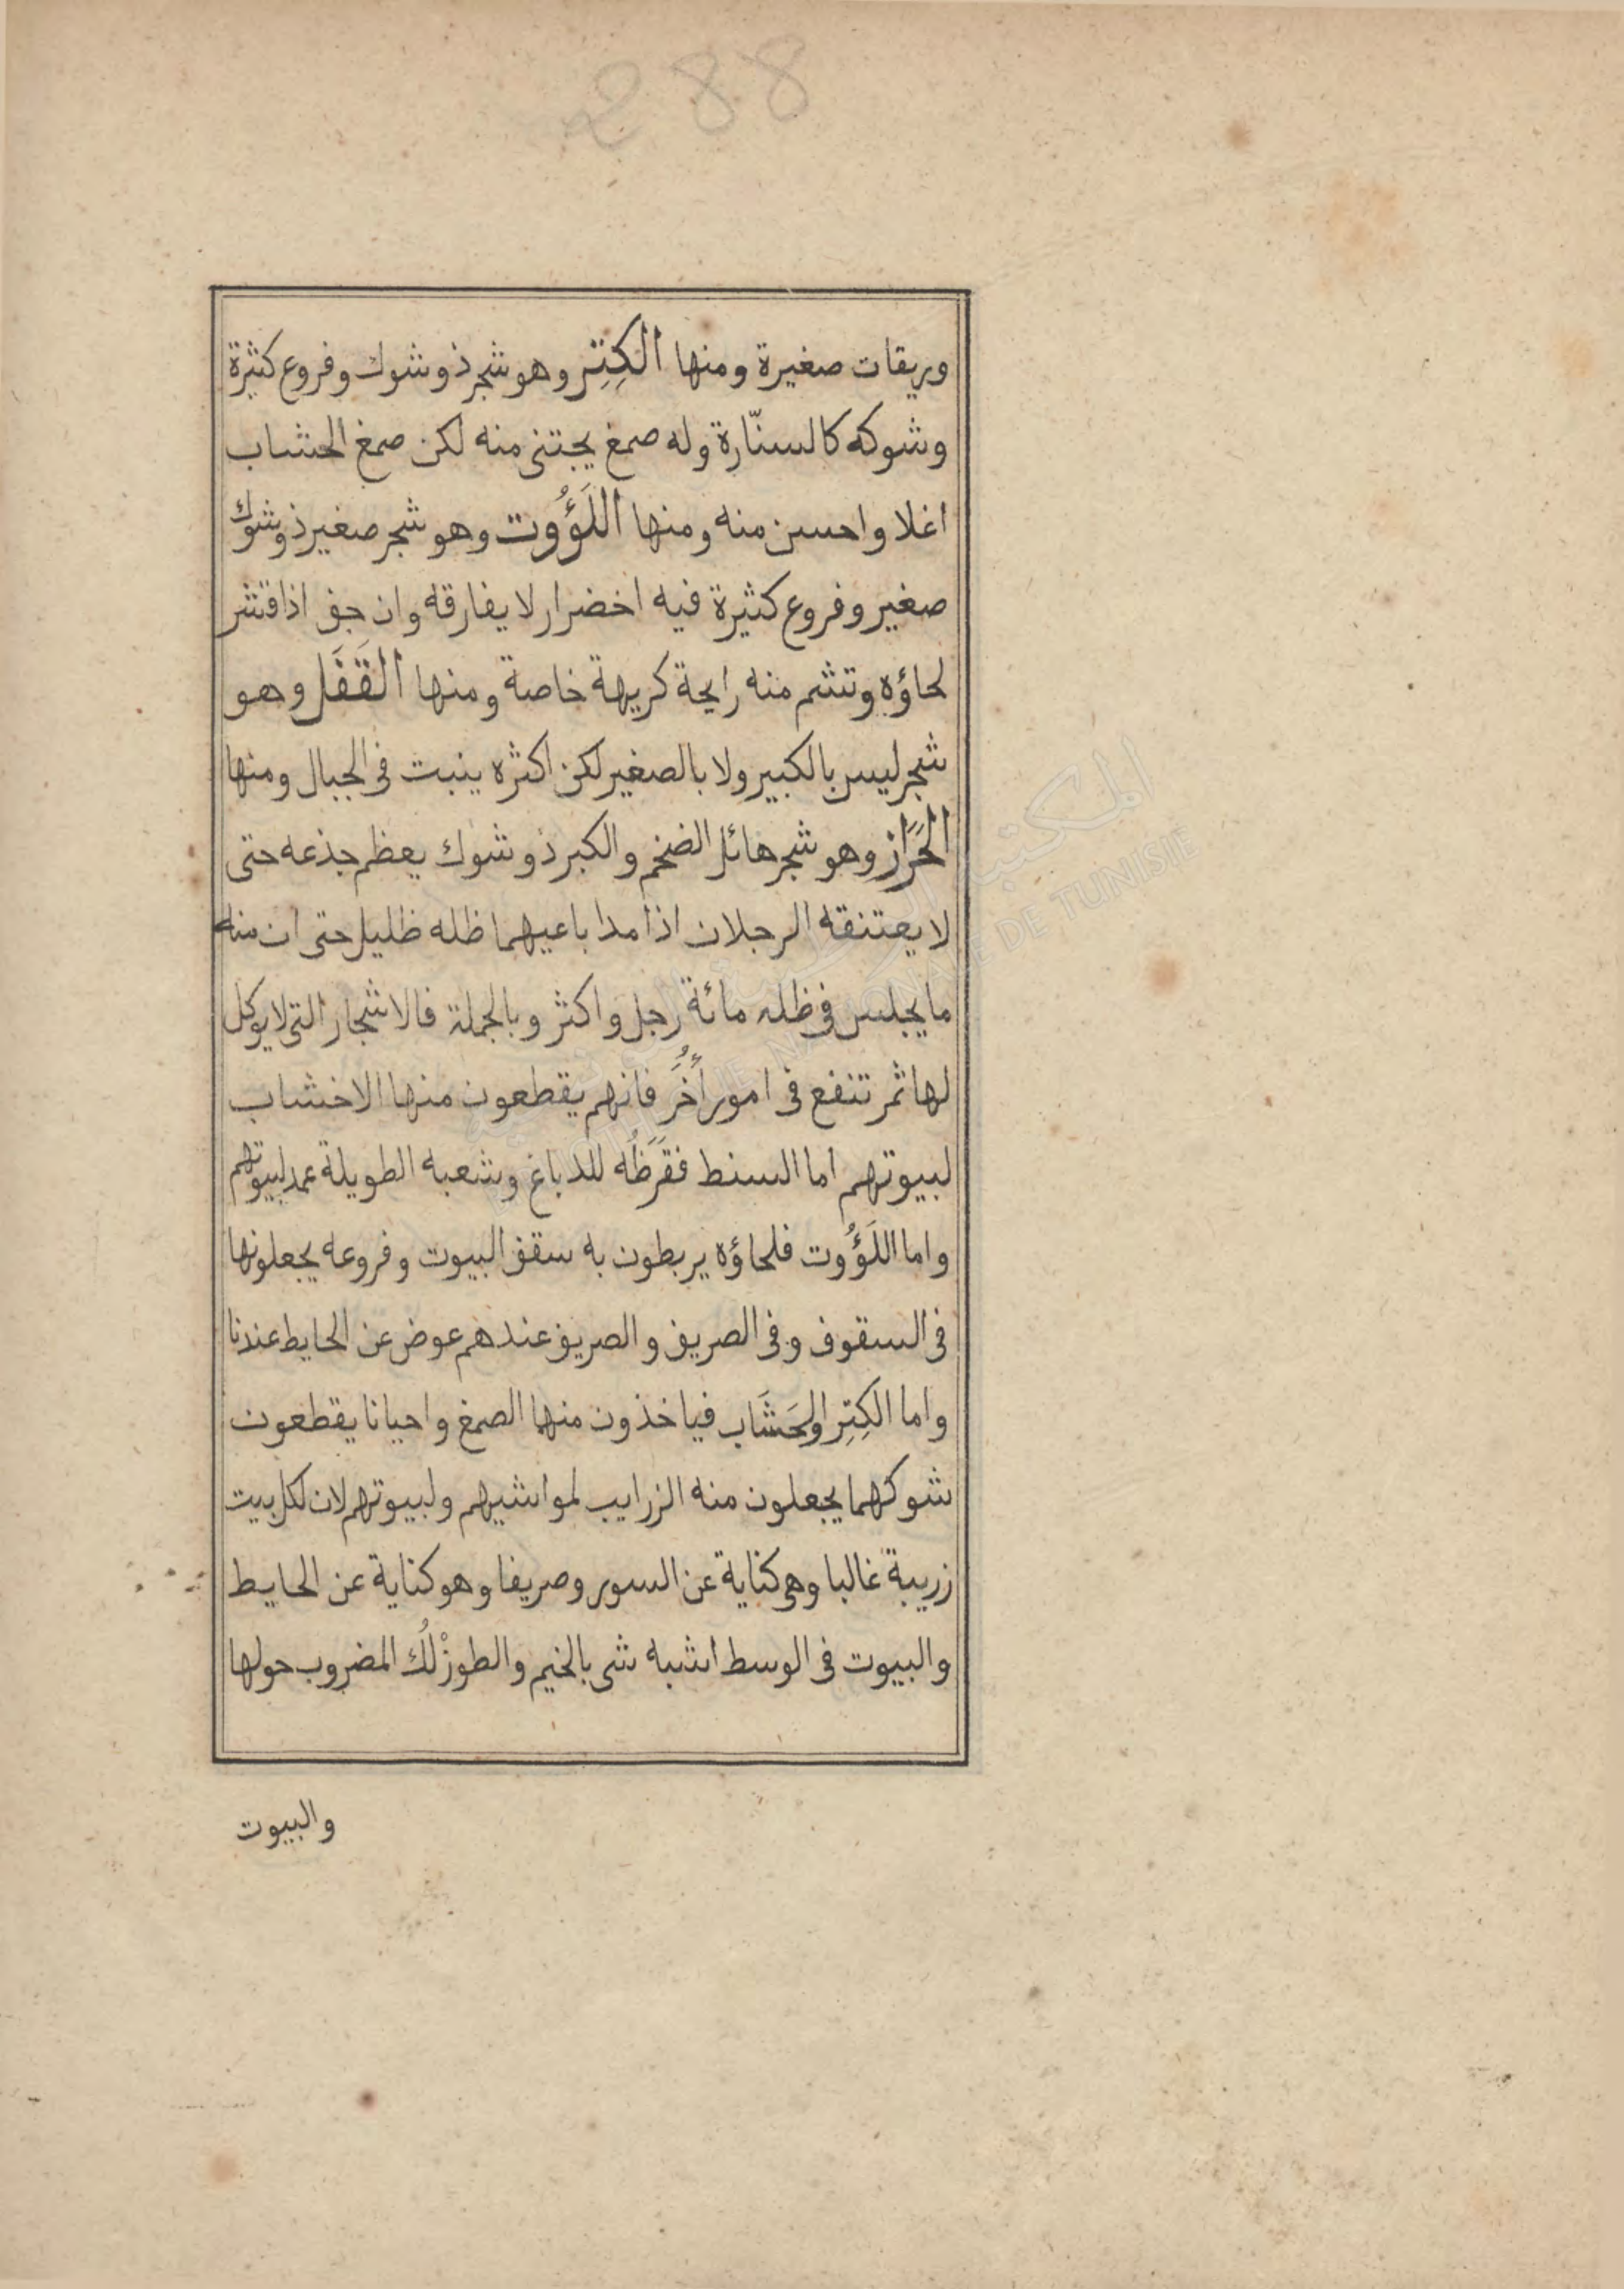 288
وريقات صغيرة ومنها الكِتِر وهو شجر ذو شوك وفروع كثيرة
وشوكه كالسنّارة وله صمغ يجتنى منه لكن صمغ الحشاب
اغلا واحسن منه ومنها اللَؤُوت وهو شجر صغير ذو شوك
صغير وفروع كثيرة فيه اخضرار لا يفارقه وان جف اذا قشر
لحاؤه وتشم منه رايحة كريهة خاصة ومنها القَفَل وهو
شجر ليس بالكبير ولا بالصغير لكن اكثره ينبت فى الجبال ومنها
الحَرَاز وهو شجر هائل الضخم والكبر ذو شوك يعظم جذعه حتى
لا يعتنقه الرجلان اذا مدا باعيهما ظله ظليل حتى ان منه
ما يجلس فى ظله مائة رجل واكثر وبالجملة فالاشجار التى لا يوكل
لها ثمر تنفع فى امور أُخَرُ فانهم يقطعون منها الاخشاب
لبيوتهم اما السنط فقَرَظُه للدباغ وشعبه الطويلة عمد لبيوتهم
واما اللَؤُوت فلحاؤه يربطون به سقف البيوت وفروعه يجعلونها
فى السقوف وفى الصريف والصريف عندهم عوض عن الحايط عندنا
واما الكِتِر والحَشَاب فياخذون منها الصمغ واحيانا يقطعون
شوكهما يجعلون منه الزرايب لمواشيهم ولبيوتهم لان لكل بيت
زريبة غالبا وهى كناية عن السور وصريفا وهو كناية عن الحايط
والبيوت فى الوسط اشبه شى بالخيم والطوزْلُك المضروب حولها
والبيوت
المكتبة الوطنية التونسية
BIBLIOTHEQUE NATIONALE DE TUNISIE